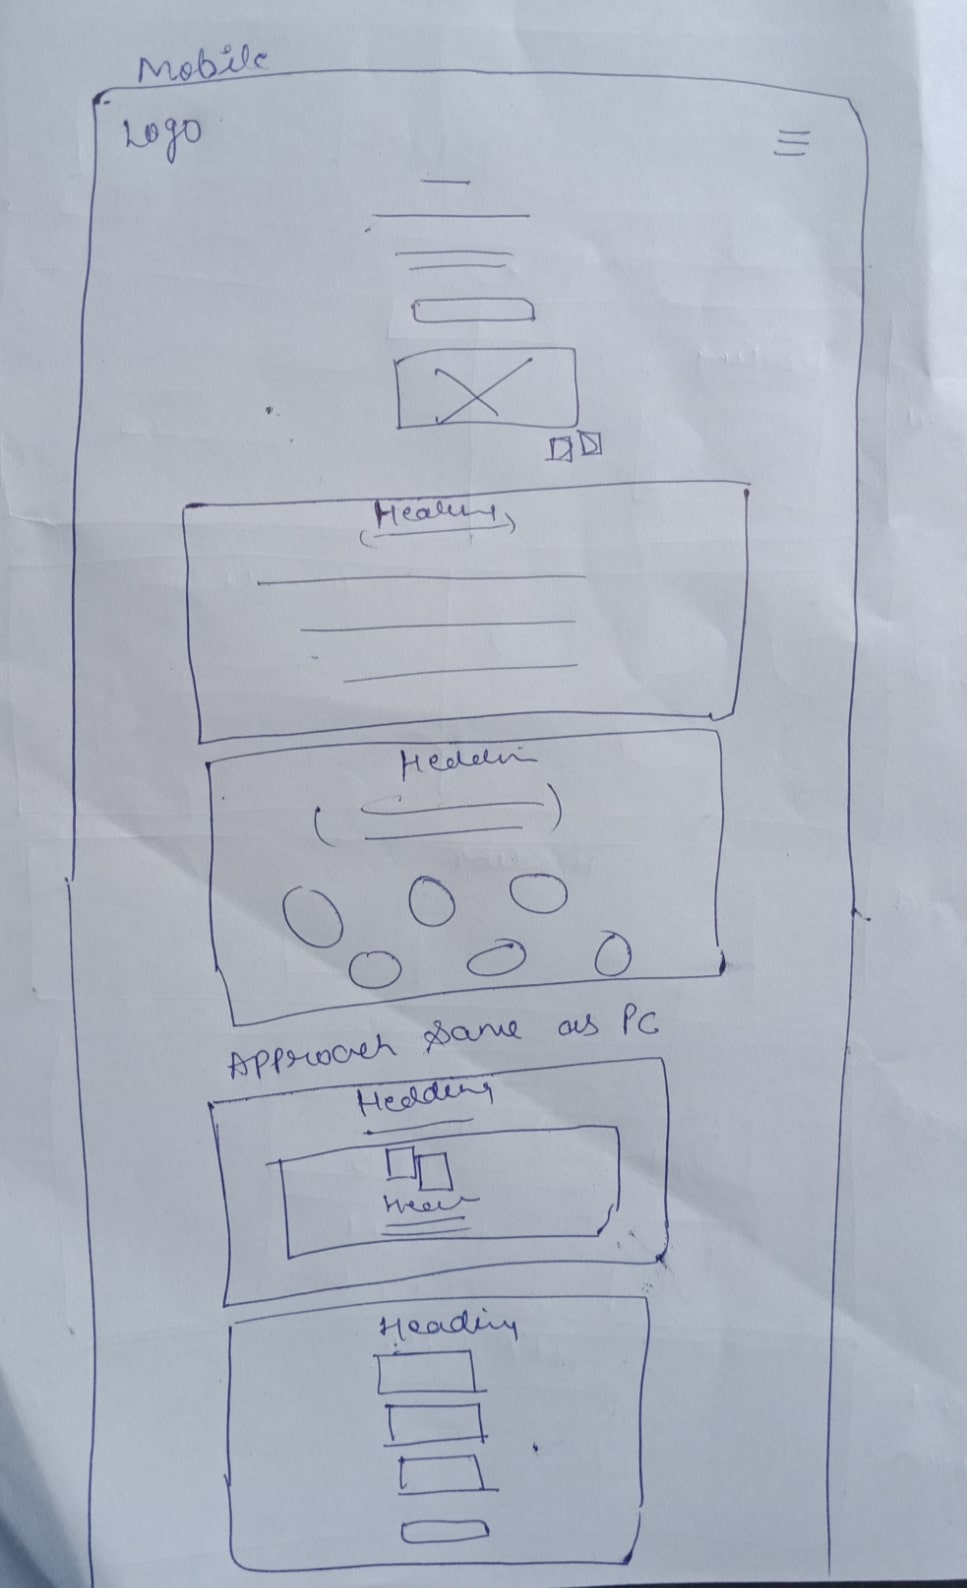 Mobile
Logo
Heading
Heddin
Approach Same as PC
Hedding
Heading